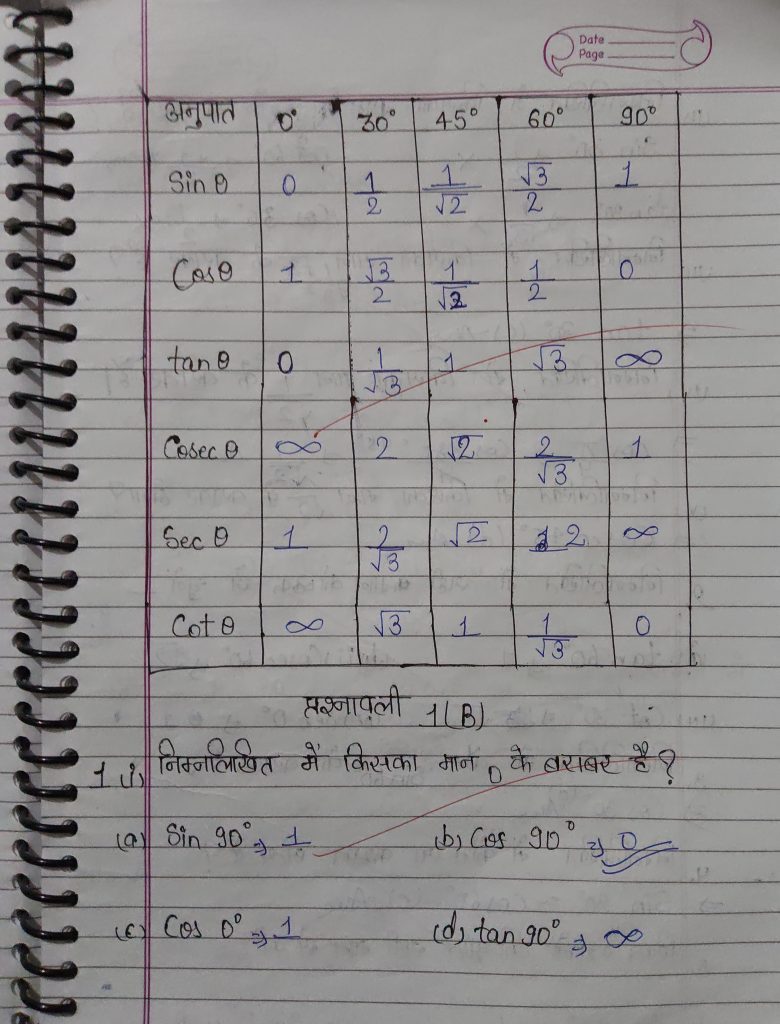 Date
Page
अनुपात 0° 30° 45° 60° 90°
Sin θ 0 1/2 1/√2 √3/2 1
Cosθ 1 √3/2 1/√2 1/2 0
tan θ 0 1/√3 1 √3 ∞
Cosec θ ∞ 2 √2 2/√3 1
Sec θ 1 2/√3 √2 2 ∞
Cot θ ∞ √3 1 1/√3 0
प्रश्नावली 1(B)
1 (i) निम्नलिखित में किसका मान 0 के बराबर है?
(a) Sin 90° ⇒ 1 (b) Cos 90° ⇒ 0
(c) Cos 0° ⇒ 1 (d) tan 90° ⇒ ∞